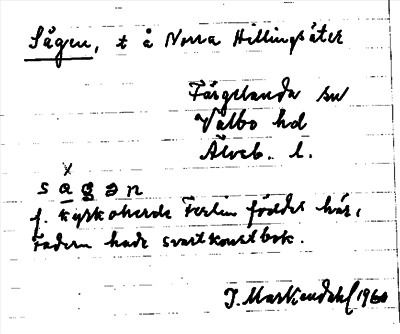 Sågen, t å Norra Hillingsäter
Färgelanda sn
Valbo hd
Älvsb. l.
x
s a g ə n
f. kyrkoherde Ferlin föddes här,
Fadern hade svartkonstbok.
J. Markendahl 1960